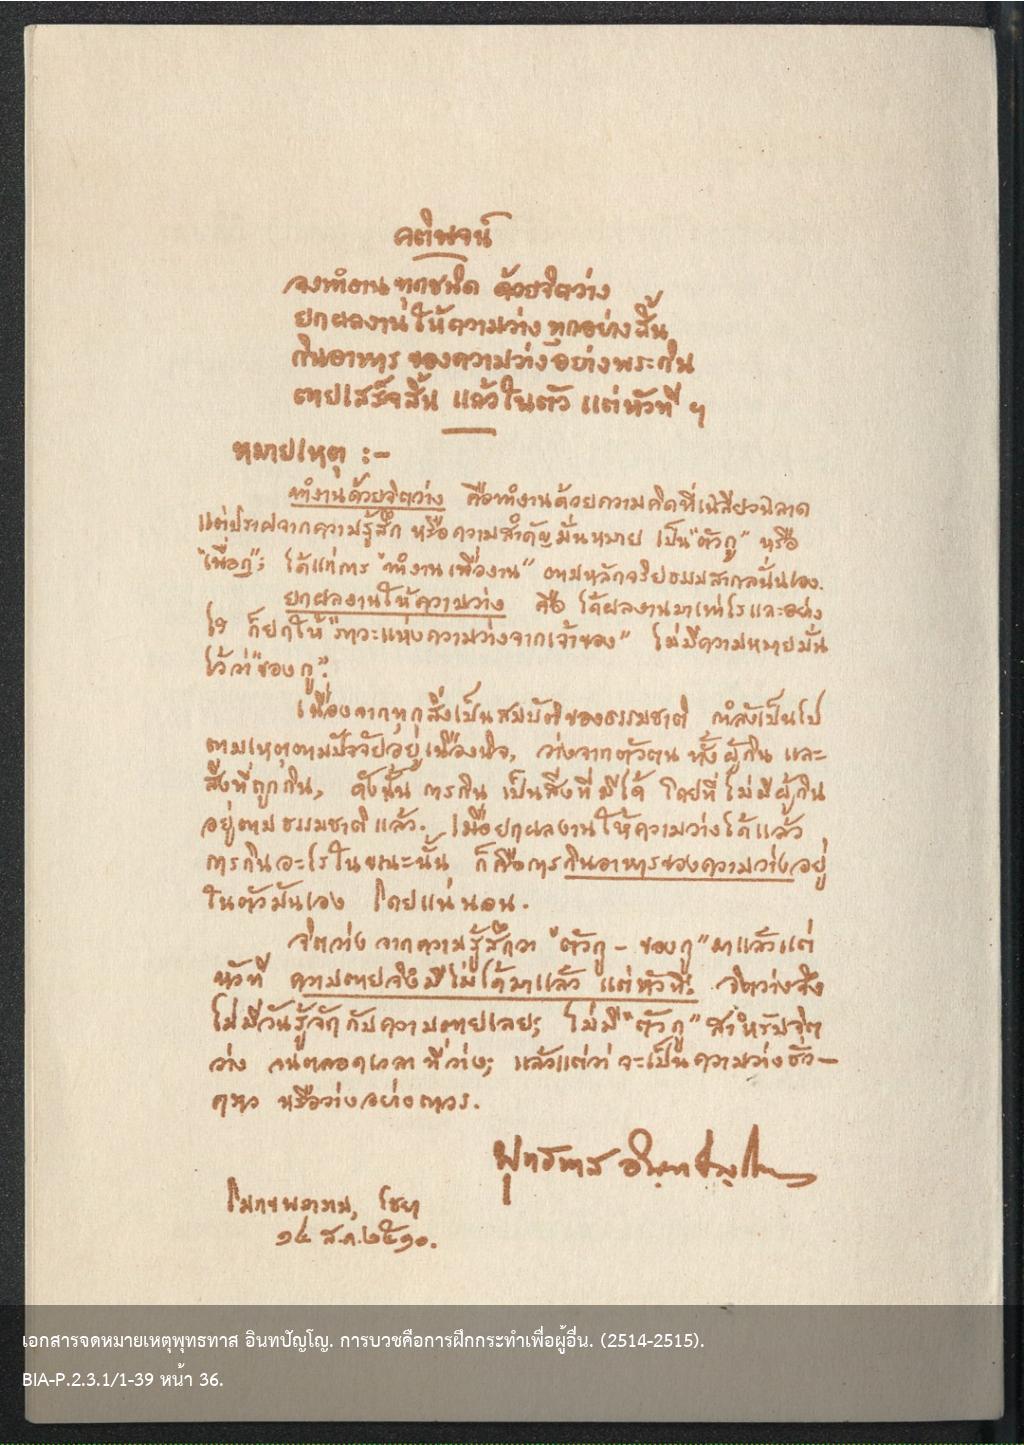 คติพจน์
จงทำงาน ทุกชนิด ด้วยจิตว่าง
ยกผลงาน ให้ความว่าง ทุกอย่างสิ้น
กินอาหาร ของความว่าง อย่างพระกิน
ตายเสร็จสิ้น แล้วในตัว แต่หัวที ฯ
หมายเหตุ :-
ทำงานด้วยจิตว่าง คือทำงานด้วยความคิดที่เฉลียวฉลาด
แต่ปราศจากความรู้สึก หรือความสำคัญมั่นหมาย เป็น "ตัวกู" หรือ
"เพื่อกู"; ได้แก่การ "ทำงานเพื่องาน" ตามหลักจริยธรรมสากลนั่นเอง.
ยกผลงานให้ความว่าง คือ ได้ผลงานมาเท่าไรและอย่าง
ไร ก็ยกให้ "ภาวะแห่งความว่างจากเจ้าของ" ไม่มีความหมายมั่น
ไว้ว่า "ของกู".
เนื่องจากทุกสิ่งเป็นสมบัติของธรรมชาติ กำลังเป็นไป
ตามเหตุตามปัจจัยอยู่เนืองนิจ, ว่างจากตัวตน ทั้งผู้กิน และ
สิ่งที่ถูกกิน, ดังนั้น การกิน เป็นสิ่งที่มีได้ โดยที่ไม่มีผู้กิน
อยู่ตามธรรมชาติแล้ว. เมื่อยกผลงานให้ความว่างได้แล้ว
การกินอะไรในขณะนั้น ก็คือการกินอาหารของความว่างอยู่
ในตัวมันเอง โดยแน่นอน.
จิตว่าง จากความรู้สึกว่า "ตัวกู - ของกู" มาแล้วแต่
หัวที ความตายจึงมีไม่ได้มาแล้ว แต่หัวที! จิตว่างจึง
ไม่มีวันรู้จักกับความตายเลย; ไม่มี "ตัวกู" สำหรับจิต
ว่าง จนตลอดเวลาที่ว่าง; แล้วแต่ว่า จะเป็นความว่างชั่ว-
คราว หรือว่างอย่างถาวร.
พุทธทาส อินทปัญโญ
โมกขพลาราม, ไชยา
๑๔ ส.ค. ๒๕๑๐.
เอกสารจดหมายเหตุพุทธทาส อินทปัญโญ. การบวชคือการฝึกกระทำเพื่อผู้อื่น. (2514-2515).
BIA-P.2.3.1/1-39 หน้า 36.